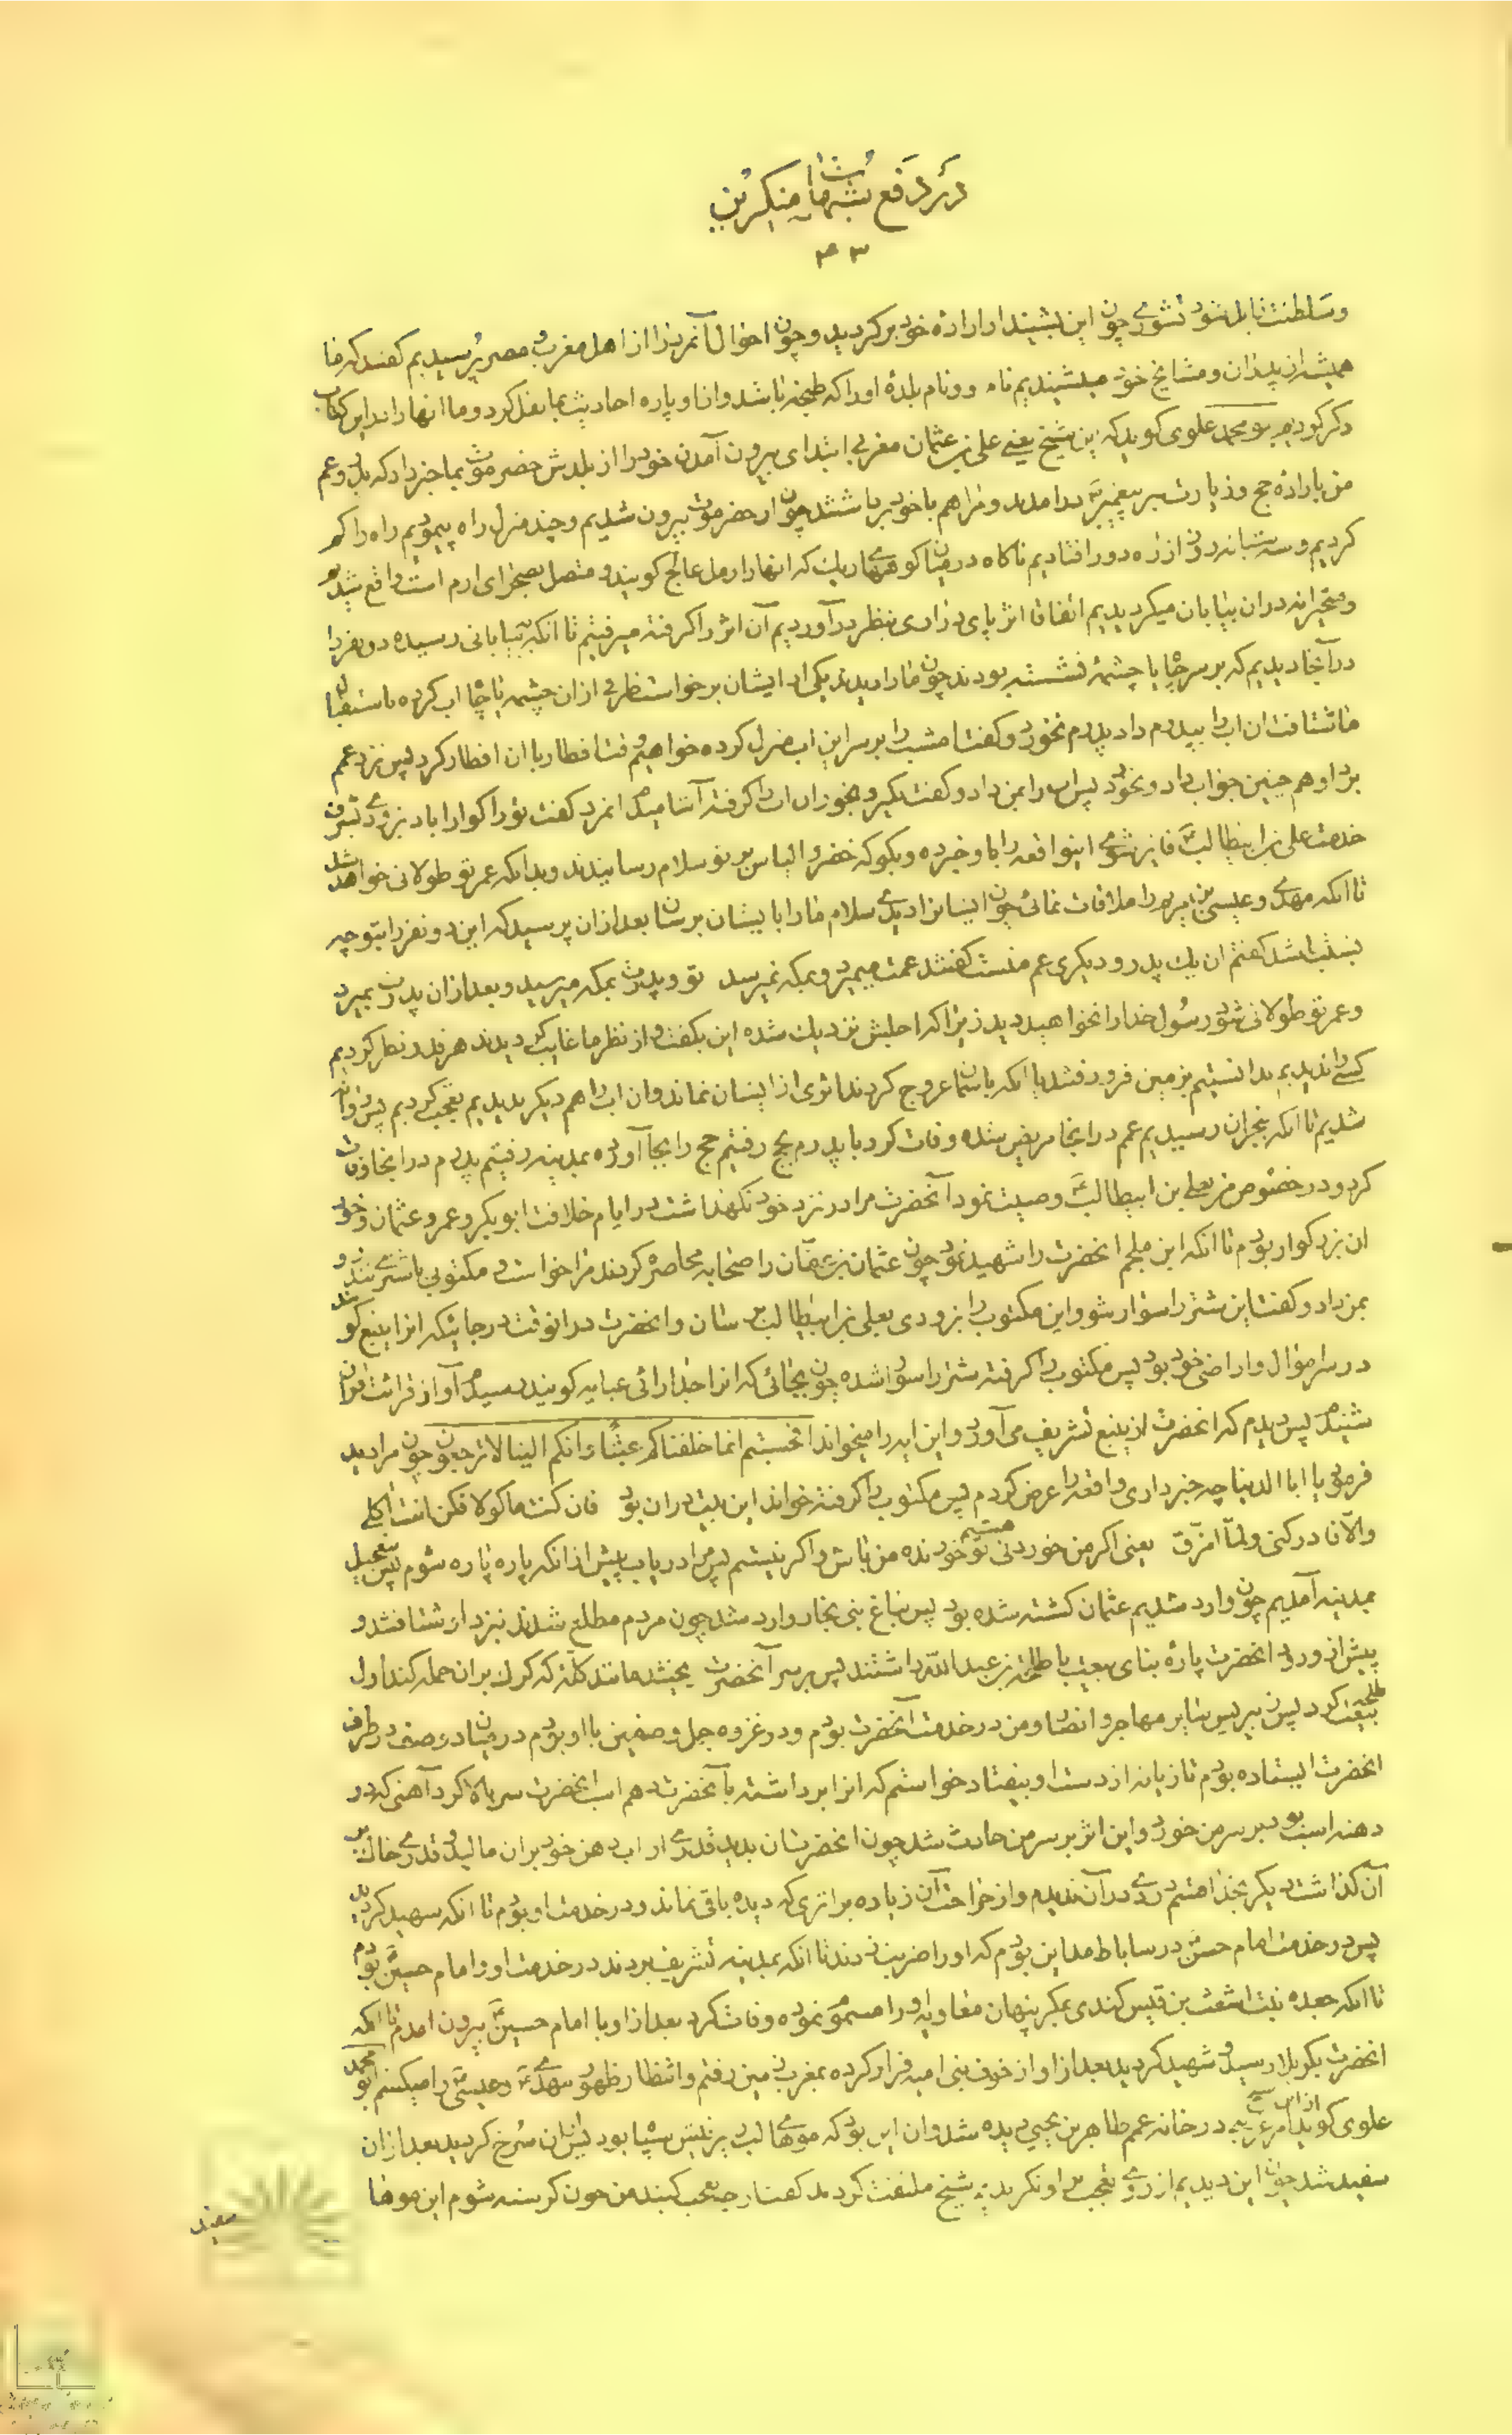 در دفع شبهات منکرین
۴۳
و سلطنت نابل شود تشوی چون این بشیند از اراده خود برکردید و چون احوال آنمرد را از اهل مغرب و مصر پرسیدیم کفتند که ما
همیشه از پدران و مشایخ خود میشنیدیم نام و نام بلدهٔ او را که طنجه باشد و انا و پاره احادیث بما نقل کرد و ما انها را در این کتاب
ذکر کردیم ابو محمد علوی کوید که این شیخ یعنی علی بن عثمان مغربی ابتدای بیرون آمدن خود را از بلدش حضرموت بما خبر داد که پدر و عم
من باراده حج و زیارت پیغمبر ص درامدند و مرا هم با خود برداشتند چون از حضرموت بیرون شدیم و چند منزل راه پیمودیم راه را کم
کردیم و سه شبانه روز از راه دور افتادیم ناکاه در میان کوههای ریک که انها را رمل عالج کویند و متصل بصحرای ارم است واقع شدیم
و متحیرانه در ان بیابان میکردیدیم اتفاقا اثر پای درازی بنظر درآوردیم آن اثر را کرفته میرفتیم تا انکه به بیابانی رسیده دو نفر را
در آنجا دیدیم که بر سر چاه یا چشمهٔ نشسته بودند چون ما را دیدند یکی از ایشان برخواست ظرفی از ان چشمه یا چاه اب کرده باستقبال
ما شتافت ان اب را بپدرم داد پدرم نخورد و کفت امشب را بر سر این اب منزل کرده خواهیم وقت افطار با ان افطار کرد پس نزد عمم
برد او هم چنین جواب داد و نخورد پس اب را بمن داد و کفت بکیر و بخور ان اب را کرفته آشامیدم انمرد کفت تو را کوارا باد بزودی بشرف
خدمت علی بن ابیطالب ع فایز شوی اینواقعه را باو خبر ده و بکو که خضر و الیاس بر تو سلام رسانیدند و بدانکه عمر تو طولانی خواهد شد
تا انکه مهدی و عیسی بن مریم را ملاقات نمائی چون ایشانرا دیدی سلام ما را بایشان برسان بعد از ان پرسید که این دو نفر را بتو چه
نسبت باشد کفتم ان یک پدر و دیکری عم منست کفتند عمت میمیرد و بمکه نمیرسد تو و پدرت بمکه میرسید و بعد از ان پدرت بمیرد
و عمر تو طولانی شود رسول خدا را نخواهید دید زیرا که اجلش نزدیک شده این بکفت و از نظر ما غایب کردیدند هرقدر نظر کردیم
کسی را ندیدیم ندانستیم بزمین فرو رفتند یا انکه باسمان عروج کردند اثری از ایشان نماند و ان اب را هم دیکر ندیدیم تعجب کردیم پس روانه
شدیم تا انکه بنجران رسیدیم عمم در انجا مریض شده وفات کرد با پدرم بحج رفتیم حج را بجا آورده بمدینه رفتیم پدرم در انجا وفات
کرد و در خصوص من بعلی بن ابیطالب ع وصیت نمود آنحضرت مرا در نزد خود نکهداشت در ایام خلافت ابوبکر و عمر و عثمان و خود
ان بزرکوار بودم تا انکه ابن ملجم انحضرت را شهید نمود چون عثمان بن عفان را صحابه محاصره کردند مرا خواست و مکتوبی با شتری تندرو
بمن داد و کفت این شتر را سوار شو و این مکتوب را بزودی بعلی بن ابیطالب برسان و انحضرت در انوقت در جائیکه انرا ینبع کویند
در سر اموال و اراضی خود بود پس مکتوب را کرفته شتر را سوار شده چون بجائی که انرا جدار ابی عبایه کویند رسیدم آواز قرائت قران
شنیدم پس دیدم که انحضرت از ینبع تشریف می آورد و این ایه را میخواند افحسبتم انما خلقناکم عبثا و انکم الینا لا ترجعون چون مرا دید
فرمود یا ابا الدنیا چه خبر داری واقعه را عرض کردم پس مکتوب را کرفته خواند این بیت در ان بود فان کنت ماکولا فکن انت اکلی
والا فادرکنی ولما امزق یعنی اکر من خوردنی تو هستم خورنده من باش و اکر نیستم پس مرا دریاب پیش از انکه پاره پاره شوم پس بتعجیل
بمدینه آمدیم چون وارد شدیم عثمان کشته شده بود پس بباغ بنی نجار وارد شد چون مردم مطلع شدند نزد او شتافتند و
پیش از ورود انحضرت پارهٔ بنای بیعت با طلحة بن عبدالله داشتند پس بر سر آنحضرت ریختند مانند کلهٔ که کرک بران حمله کند اول
طلحه بیعت کرد پس زبیر پس سایر مهاجر و انصار و من در خدمت آنحضرت بودم و در غزوه جمل و صفین با او بودم در میان دو صف در طرف
انحضرت ایستاده بودم تازیانه از دست او بیفتاد خواستم که انرا برداشته بآنحضرت دهم اسب انحضرت سر بالا کرد آهنی که در
دهنه اسب بود بر سر من خورد و این اثر بر سر من حادث شد چون انحضرت ان بدید قدری از اب دهن خود بران مالید و قدری خاک بر
آن کذاشت دیکر بخدا قسم دردی در آن ندیدم و از جراحت آن زیاده بر اثری که دیده باقی نماند و در خدمت او بودم تا انکه شهید کردید
پس در خدمت امام حسن ع در ساباط مداین بودم که او را ضربت زدند تا انکه بمدینه تشریف بردند در خدمت او و امام حسین ع بودم
تا انکه جعده بنت اشعث بن قیس کندی بمکر پنهان معاویه او را مسموم نموده وفات کرد بعد از او با امام حسین ع بیرون امدم تا انکه
انحضرت بکربلا رسید و شهید کردید بعد از او از خوف بنی امیه فرار کرده بمغرب زمین رفتم و انتظار ظهور مهدی ع و عیسی ع را میکشم ابو محمد
علوی کوید از این شیخ امر غریبی در خانه عمم طاهر بن یحیی دیده شد و ان این بود که موهای لب زیرینش سیاه بود پس ان سرخ کردید بعد از ان
سفید شد چون این دیدیم از روی تعجب باو نکریدیم شیخ ملتفت کردید کفت از چه تعجب کنید من چون کرسنه شوم این موها
سفید